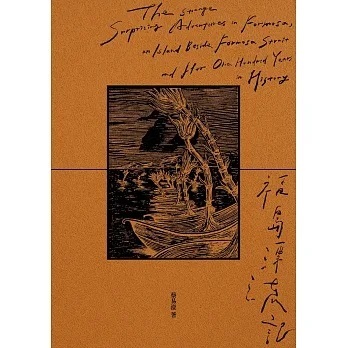 The strange
Surprising Adventures in Formosa,
an Island Beside Formosa Strait
and Her One Hundred Years
in History
福島漂流記
蔡易澄 著